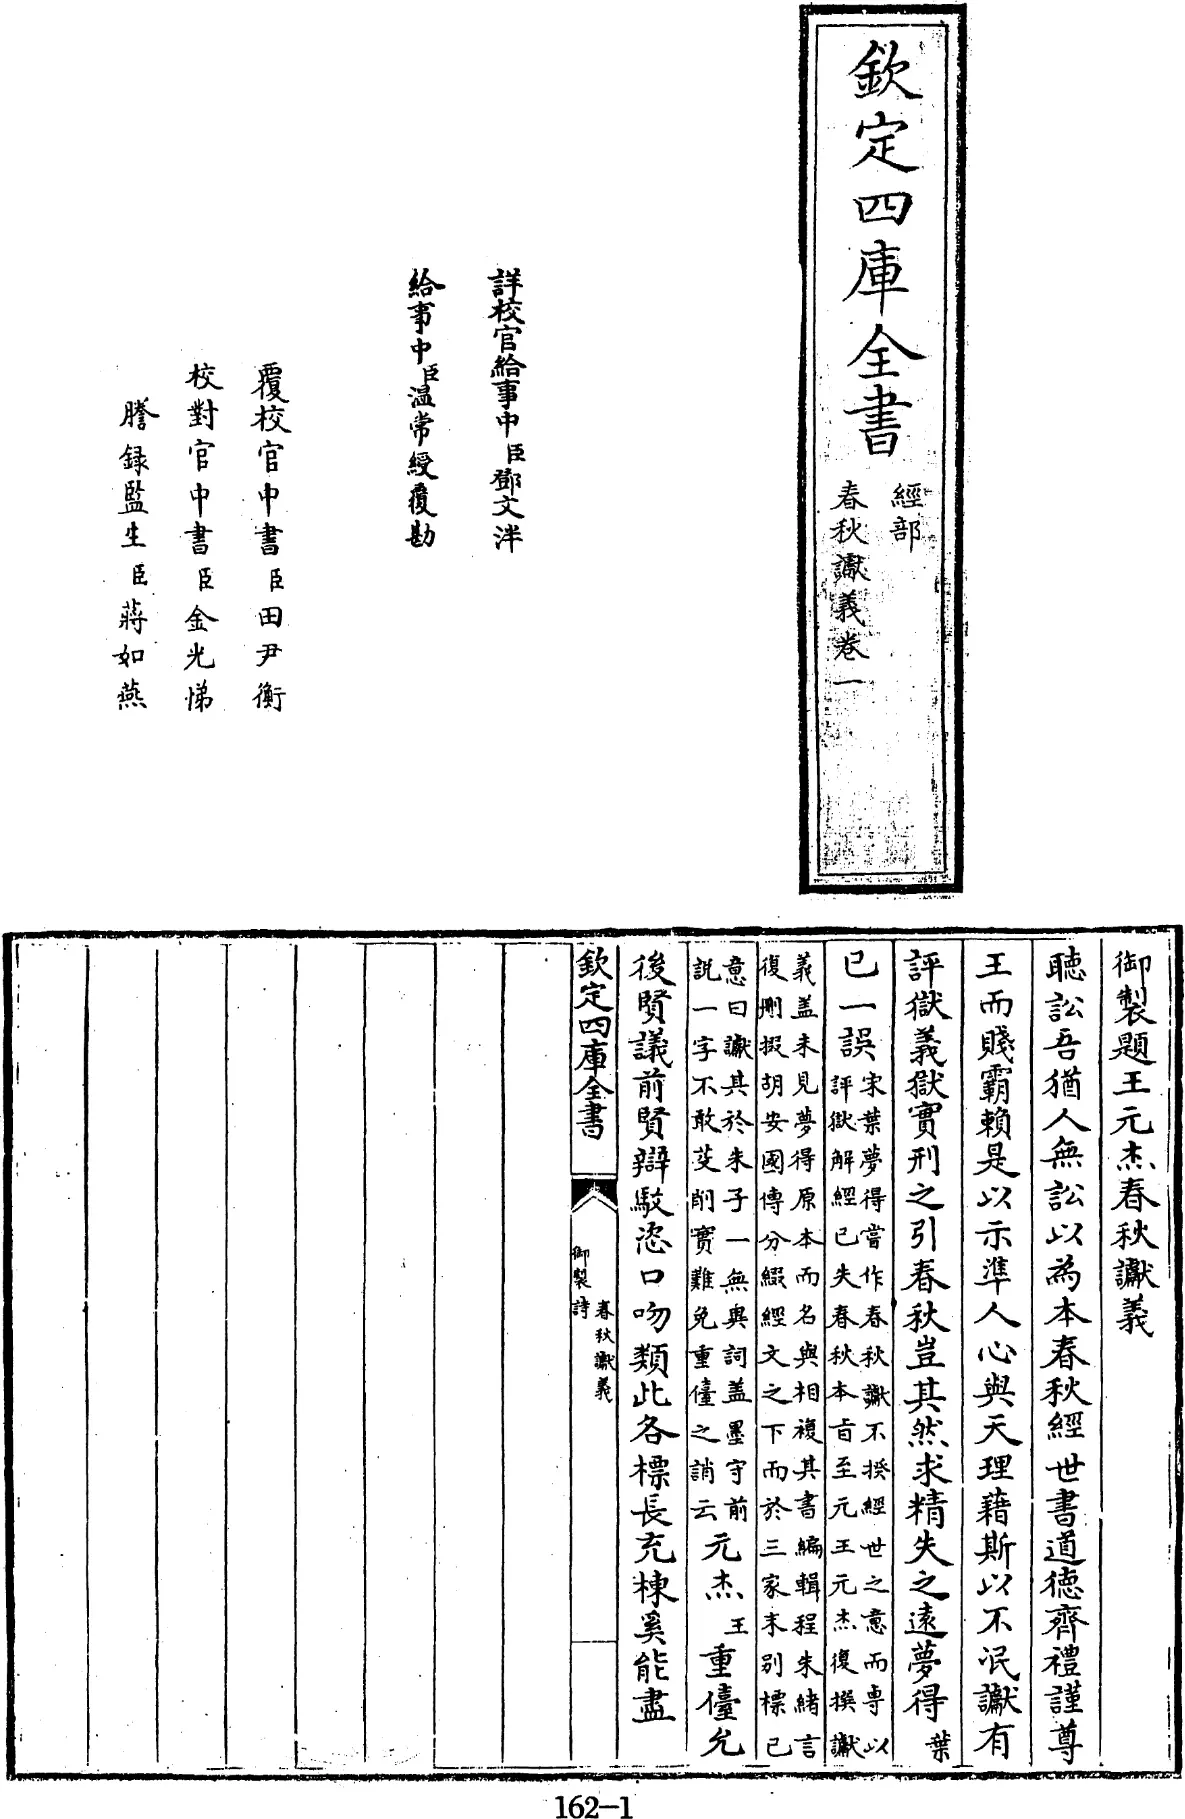 欽定四庫全書
經部
春秋讞義卷一
詳校官給事中臣鄧文泮
給事中臣溫常綬覆勘
覆校官中書臣田尹衡
校對官中書臣金光悌
謄録監生臣蔣如燕
御製題王元杰春秋讞義
聽訟吾猶人無訟以為本春秋經世書道德齊禮謹尊
王而賤霸賴是以示準人心與天理藉斯以不泯讞有
評獄義獄實刑之引春秋豈其然求精失之遠夢得葉
已一誤
宋葉夢得嘗作春秋讞不揆經世之意而専以
評獄解經已失春秋本旨至元王元杰復撰讞
義盖未見夢得原本而名與相複其書編輯程朱緒言
復刪掇胡安國傳分綴經文之下而於三家末別標己
意曰讞其於朱子一無異詞盖墨守前
説一字不敢芟削實難免重儓之誚云
元杰王重儓允
後賢議前賢辯駁恣口吻類此各標長充棟奚能盡
欽定四庫全書
春秋讞義
御製詩
162-1